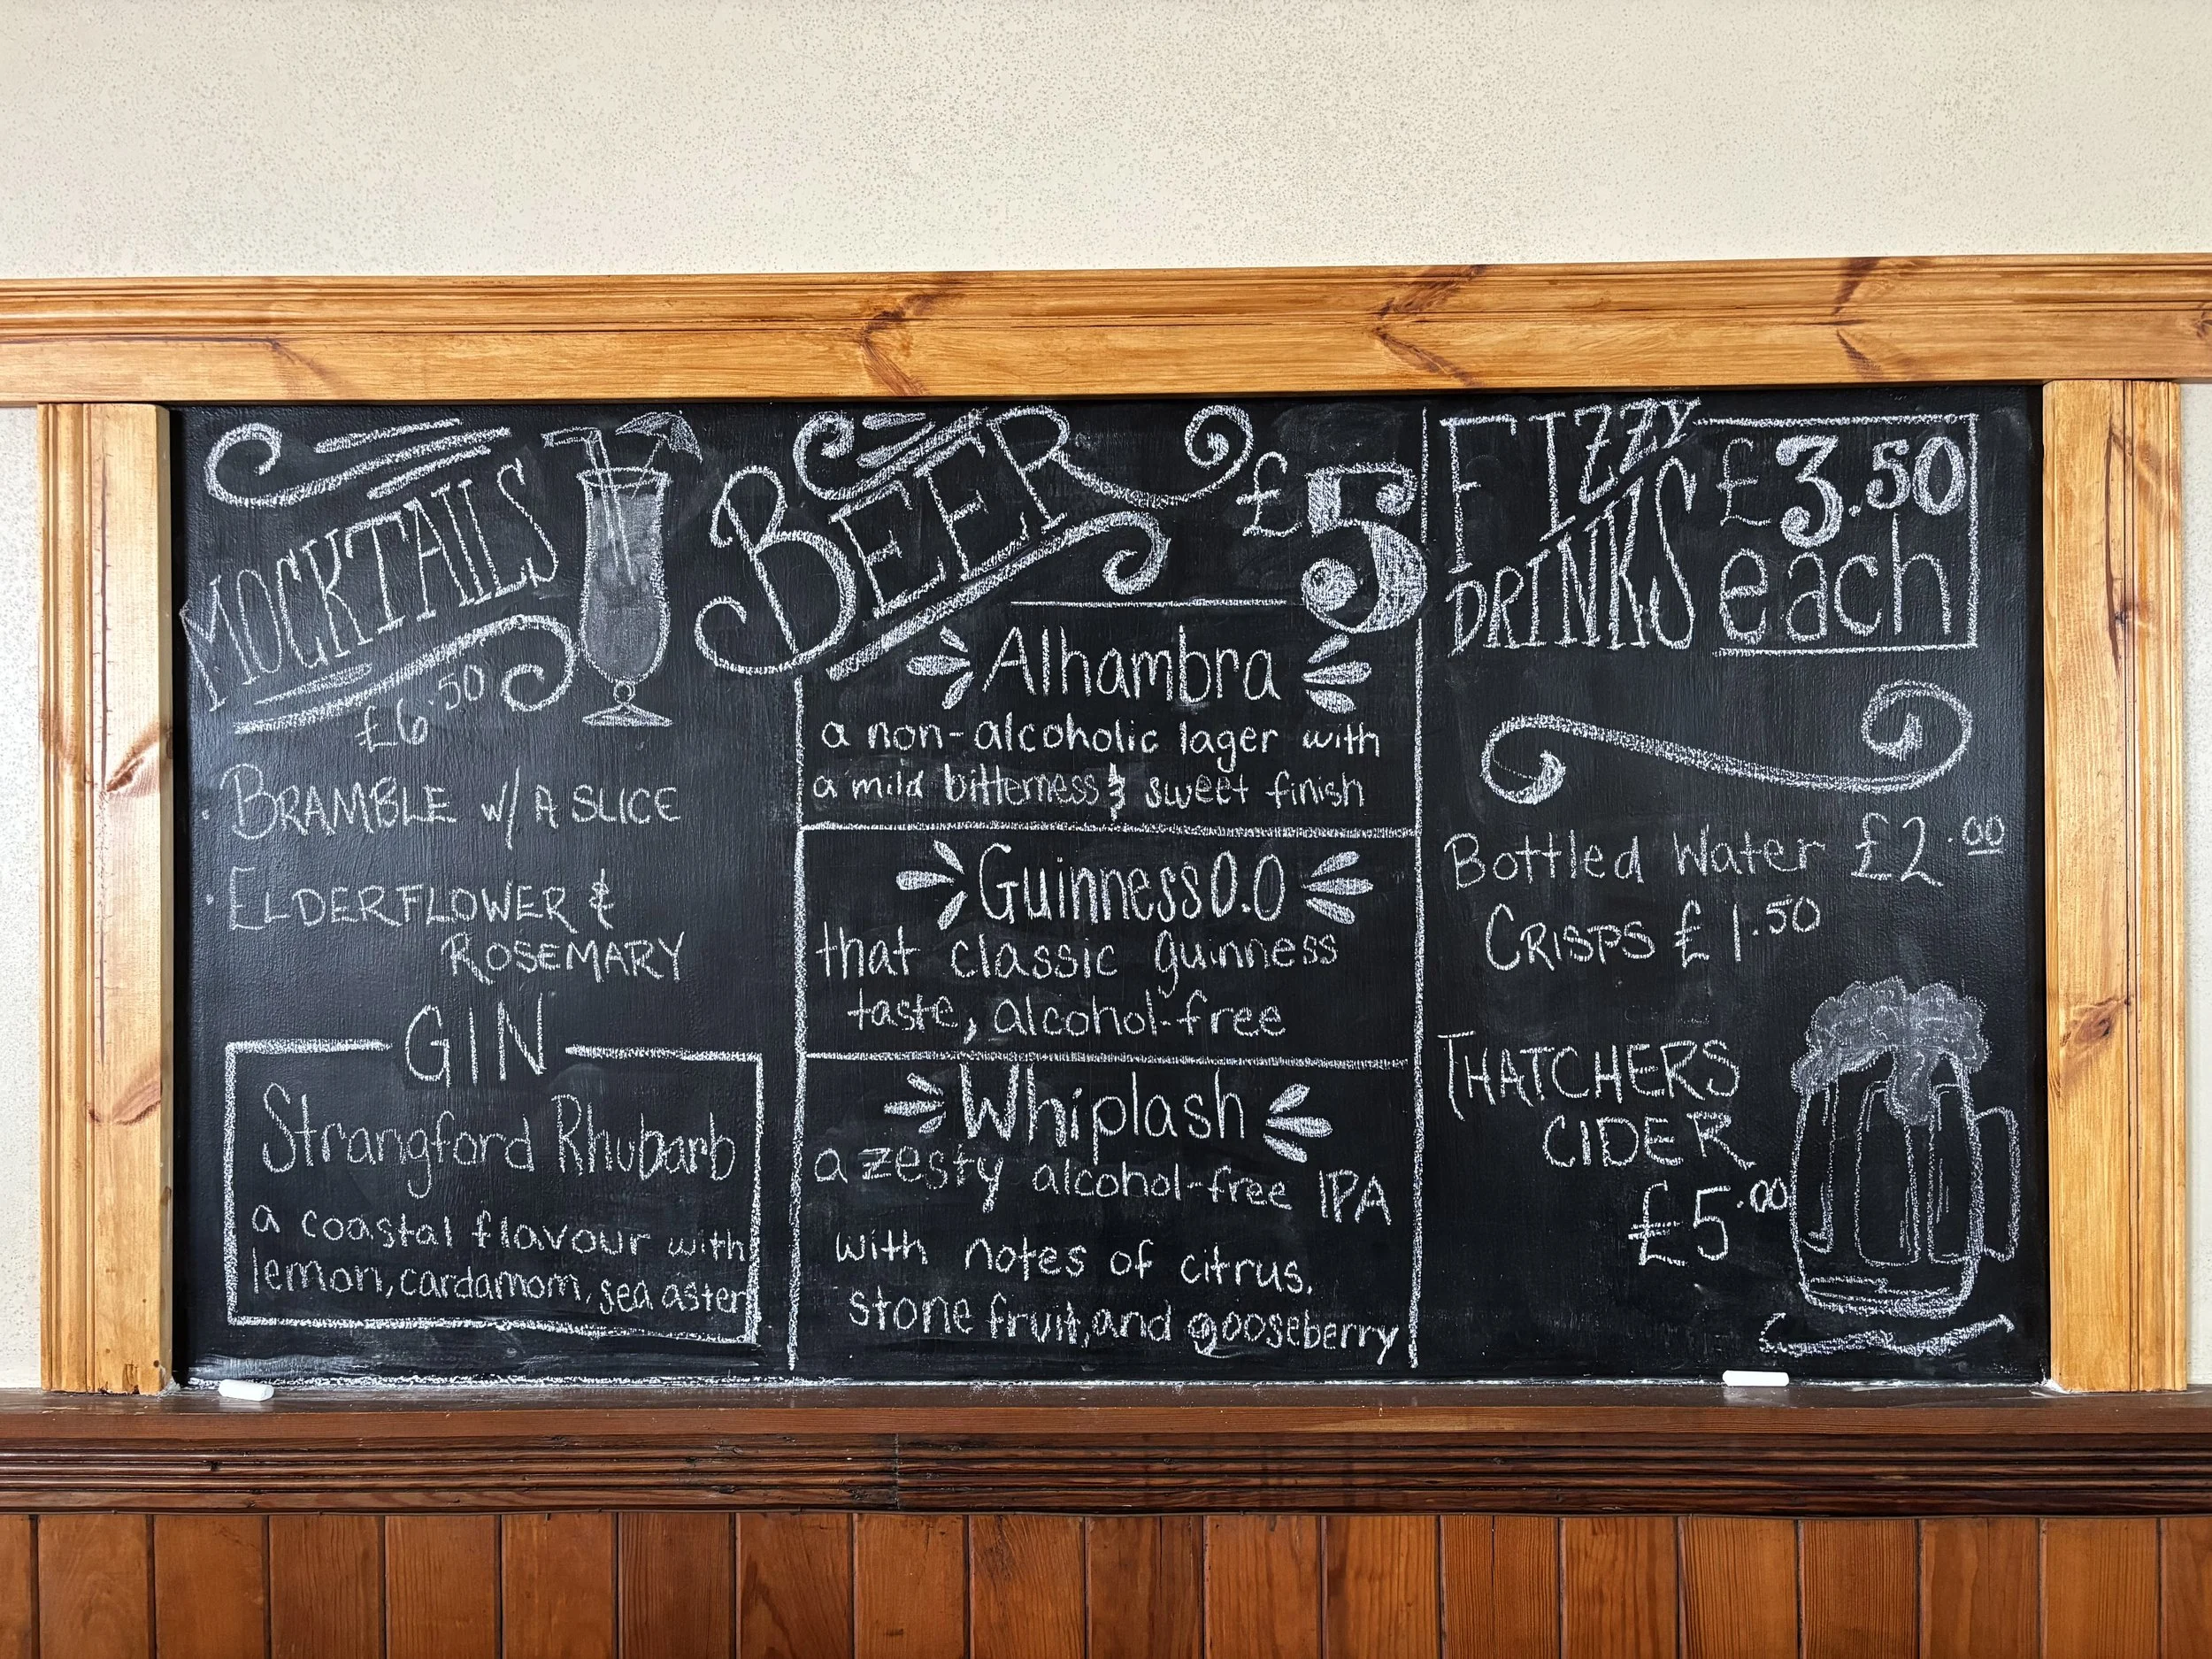 MOCKTAILS
£6.50
· BRAMBLE w/ A SLICE
· ELDERFLOWER &
ROSEMARY
GIN
Strangford Rhubarb
a coastal flavour with
lemon, cardamom, sea aster
BEER £5
Alhambra
a non-alcoholic lager with
a mild bitterness & sweet finish
Guinness 0.0
that classic guinness
taste, alcohol-free
Whiplash
a zesty alcohol-free IPA
with notes of citrus,
stone fruit, and gooseberry
FIZZY
DRINKS
£3.50
each
Bottled Water £2.00
CRISPS £1.50
THATCHERS
CIDER
£5.00